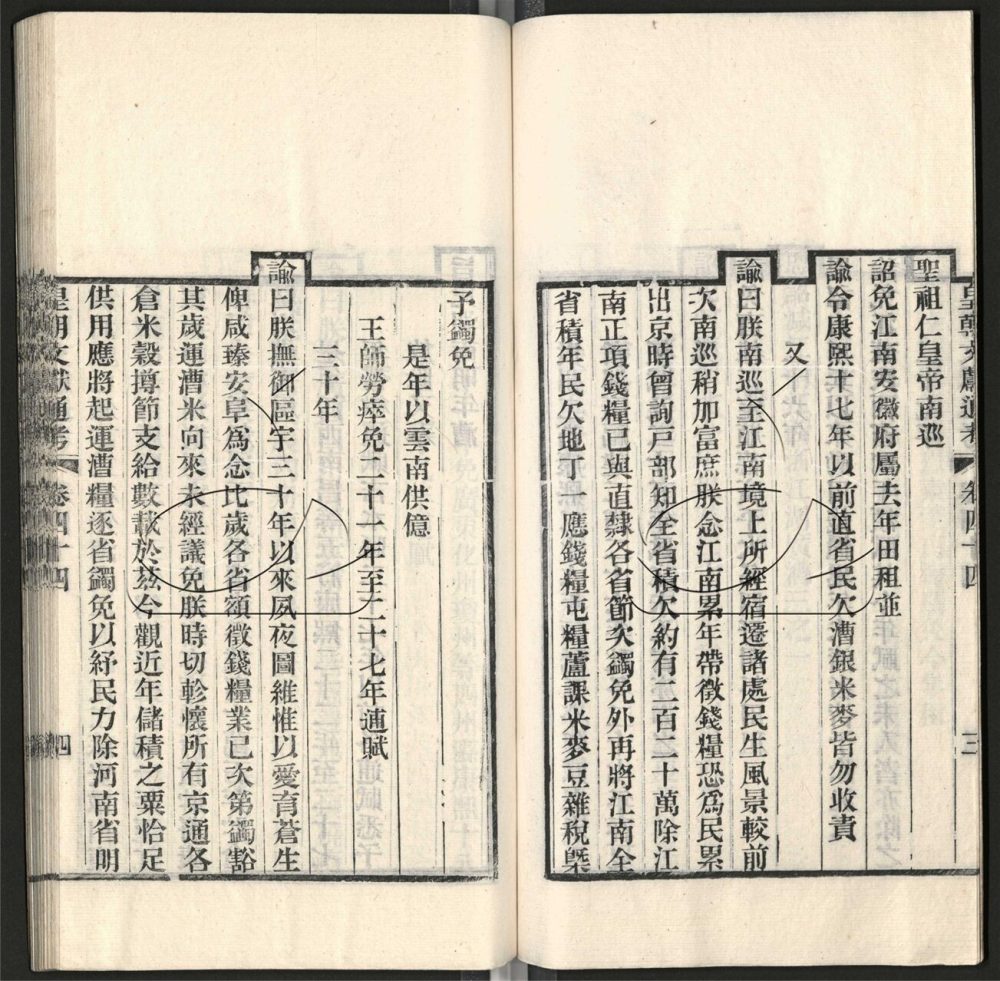 皇朝文獻通考 卷四十四 三
聖祖仁皇帝南巡
詔免江南安徽府屬去年田租並
諭令康熙十七年以前直省民欠漕銀米麥皆勿收責
又
諭曰朕南巡至江南境上所經宿遷諸處民生風景較前
次南巡稍加富庶朕念江南累年帶徵錢糧恐爲民累
出京時曾詢戸部知全省積欠約有二百二十萬除江
南正項錢糧已與直隸各省節次蠲免外再將江南全
省積年民欠地丁一應錢糧屯糧蘆課米麥豆雜稅槩
予蠲免
是年以雲南供億
王師勞瘁免二十一年至二十七年逋賦
三十年
諭曰朕撫御區宇三十年以來夙夜圖維惟以愛育蒼生
俾咸臻安阜爲念比歲各省額徵錢糧業已次第蠲豁
其歲運漕米向來未經議免朕時切軫懷所有京通各
倉米穀撙節支給數載於茲今觀近年儲積之粟恰足
供用應將起運漕糧逐省蠲免以紓民力除河南省明
皇朝文獻通考 卷四十四 四